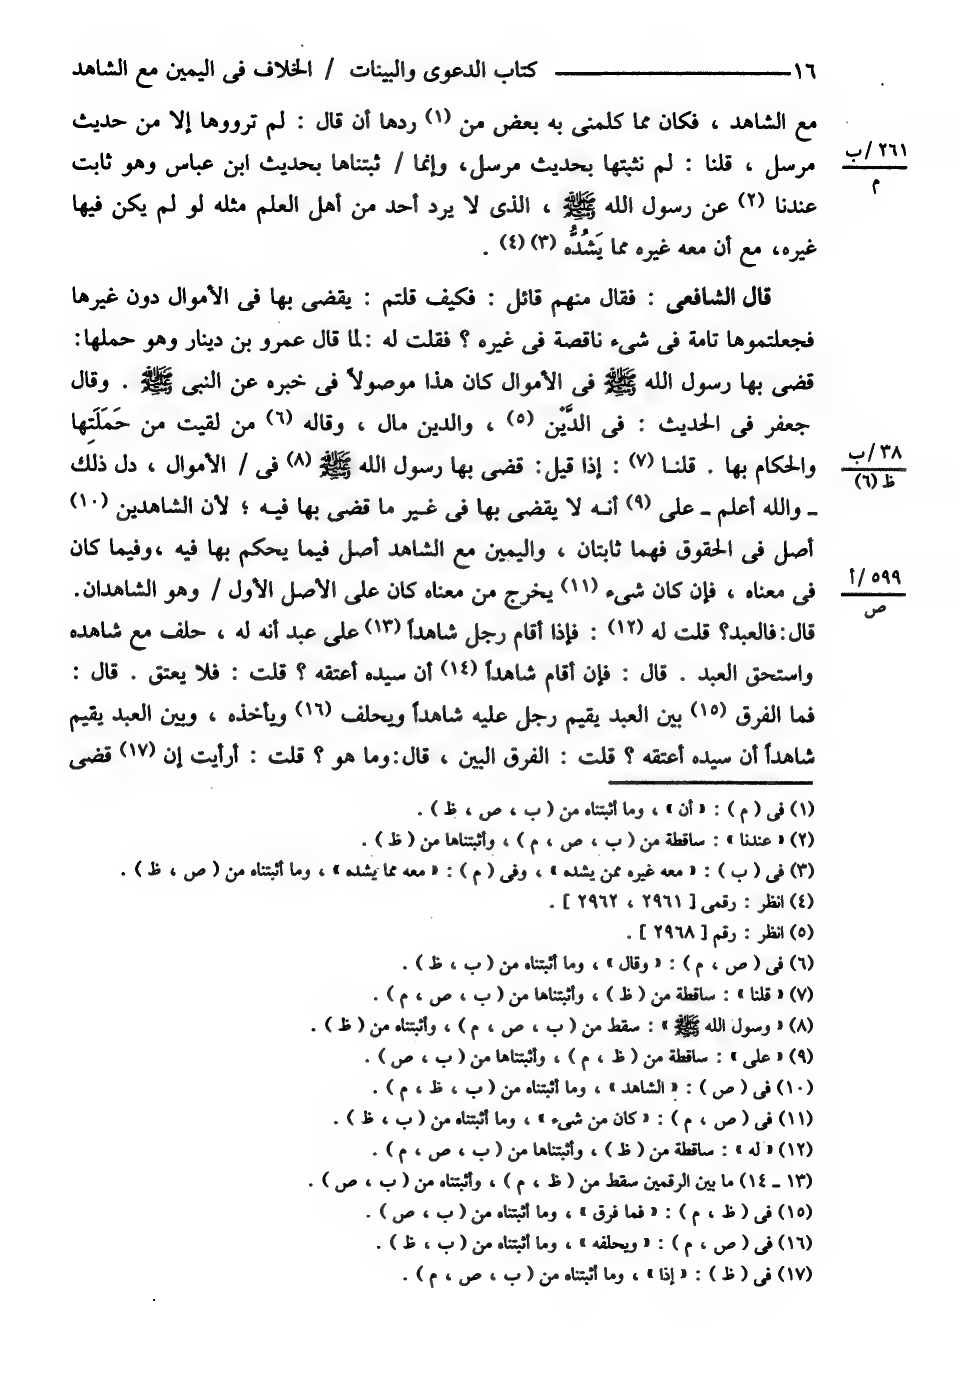 ١٦ ـــــــــــ كتاب الدعوى والبينات / الخلاف فى اليمين مع الشاهد
مع الشاهد ، فكان مما كلمنى به بعض من (١) ردها أن قال : لم ترووها إلا من حديث
مرسل ، قلنا : لم نثبتها بحديث مرسل، وإنما / ثبتناها بحديث ابن عباس وهو ثابت
٢٦١/ب
م
عندنا (٢) عن رسول الله ﷺ ، الذى لا يرد أحد من أهل العلم مثله لو لم يكن فيها
غيره، مع أن معه غيره مما يَشُدُّه (٣) (٤) .
قال الشافعى : فقال منهم قائل : فكيف قلتم : يقضى بها فى الأموال دون غيرها
فجعلتموها تامة فى شىء ناقصة فى غيره ؟ فقلت له :لما قال عمرو بن دينار وهو حملها:
قضى بها رسول الله ﷺ فى الأموال كان هذا موصولاً فى خبره عن النبى ﷺ . وقال
جعفر فى الحديث : فى الدَّيْن (٥) ، والدين مال ، وقاله (٦) من لقيت من حَمَلَتِها
والحكام بها . قلنـا (٧) : إذا قيل: قضى بها رسول الله ﷺ (٨) فى / الأموال ، دل ذلك
٣٨/ب
ظ (٦)
ـ والله أعلم ـ على (٩) أنـه لا يقضى بها فى غـير ما قضى بها فيـه ؛ لأن الشاهدين (١٠)
أصل فى الحقوق فهما ثابتان ، واليمين مع الشاهد أصل فيما يحكم بها فيه ،وفيما كان
فى معناه ، فإن كان شىء (١١) يخرج من معناه كان على الأصل الأول / وهو الشاهدان.
٥٩٩/أ
ص
قال:فالعبد؟ قلت له (١٢) : فإذا أقام رجل شاهداً (١٣) على عبد أنه له ، حلف مع شاهده
واستحق العبد . قال : فإن أقام شاهداً (١٤) أن سيده أعتقه ؟ قلت : فلا يعتق . قال :
فما الفرق (١٥) بين العبد يقيم رجل عليه شاهداً ويحلف (١٦) ويأخذه ، وبين العبد يقيم
شاهداً أن سيده أعتقه ؟ قلت : الفرق البين ، قال:وما هو ؟ قلت : أرأيت إن (١٧) قضى
(١) فى ( م ) : « أن » ، وما أثبتناه من ( ب ، ص ، ظ ) .
(٢) « عندنا » : ساقطة من ( ب ، ص ، م ) ، وأثبتناها من ( ظ ) .
(٣) فى ( ب ) : « معه غيره ممن يشده » ، وفى ( م ) : « معه مما يشده » ، وما أثبتناه من ( ص ، ظ ) .
(٤) انظر : رقمى [ ٢٩٦١ ، ٢٩٦٢ ] .
(٥) انظر : رقم [ ٢٩٦٨ ] .
(٦) فى ( ص ، م ) : « وقال » ، وما أثبتناه من ( ب ، ظ ) .
(٧) « قلنا » : ساقطة من ( ظ ) ، وأثبتناها من ( ب ، ص ، م ) .
(٨) « رسول الله ﷺ » : سقط من ( ب ، ص ، م ) ، وأثبتناه من ( ظ ) .
(٩) « على » : ساقطة من ( ظ ، م ) ، وأثبتناها من ( ب ، ص ) .
(١٠) فى ( ص ) : « الشاهد » ، وما أثبتناه من ( ب ، ظ ، م ) .
(١١) فى ( ص ، م ) : « كان من شىء » ، وما أثبتناه من ( ب ، ظ ) .
(١٢) « له » : ساقطة من ( ظ ) ، وأثبتناها من ( ب ، ص ، م ) .
(١٣ ـ ١٤) ما بين الرقمين سقط من ( ظ ، م ) ، وأثبتناه من ( ب ، ص ) .
(١٥) فى ( ظ ، م ) : « فما فرق » ، وما أثبتناه من ( ب ، ص ) .
(١٦) فى ( ص ، م ) : « ويحلفه » ، وما أثبتناه من ( ب ، ظ ) .
(١٧) فى ( ظ ) : « إذا » ، وما أثبتناه من ( ب ، ص ، م ) .